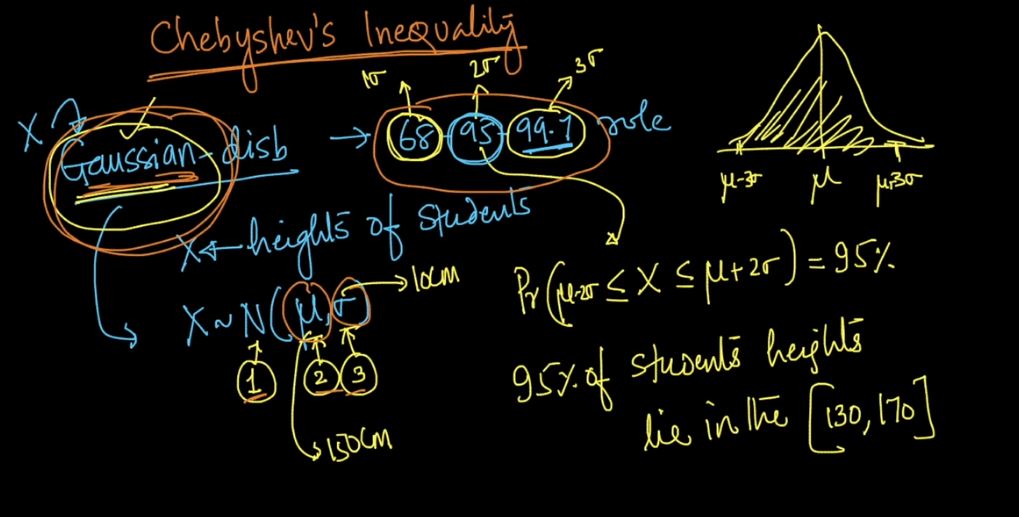 Chebyshev's Inequality
1σ 2σ 3σ
X
Gaussian-disb → 68-95-99.7 rule
μ-3σ μ μ+3σ
X ← heights of students
→ 10cm
X ~ N(μ, σ)
1 2 3
→ 150cm
Pr(μ-2σ ≤ X ≤ μ+2σ) = 95%
95% of students heights
lie in the [130, 170]